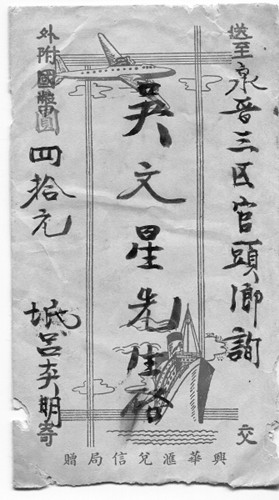 送至泉晋三区官頭鄉詢交
吴文星先生啓
外附國幣圓四拾元
寄
興華滙兌信局贈